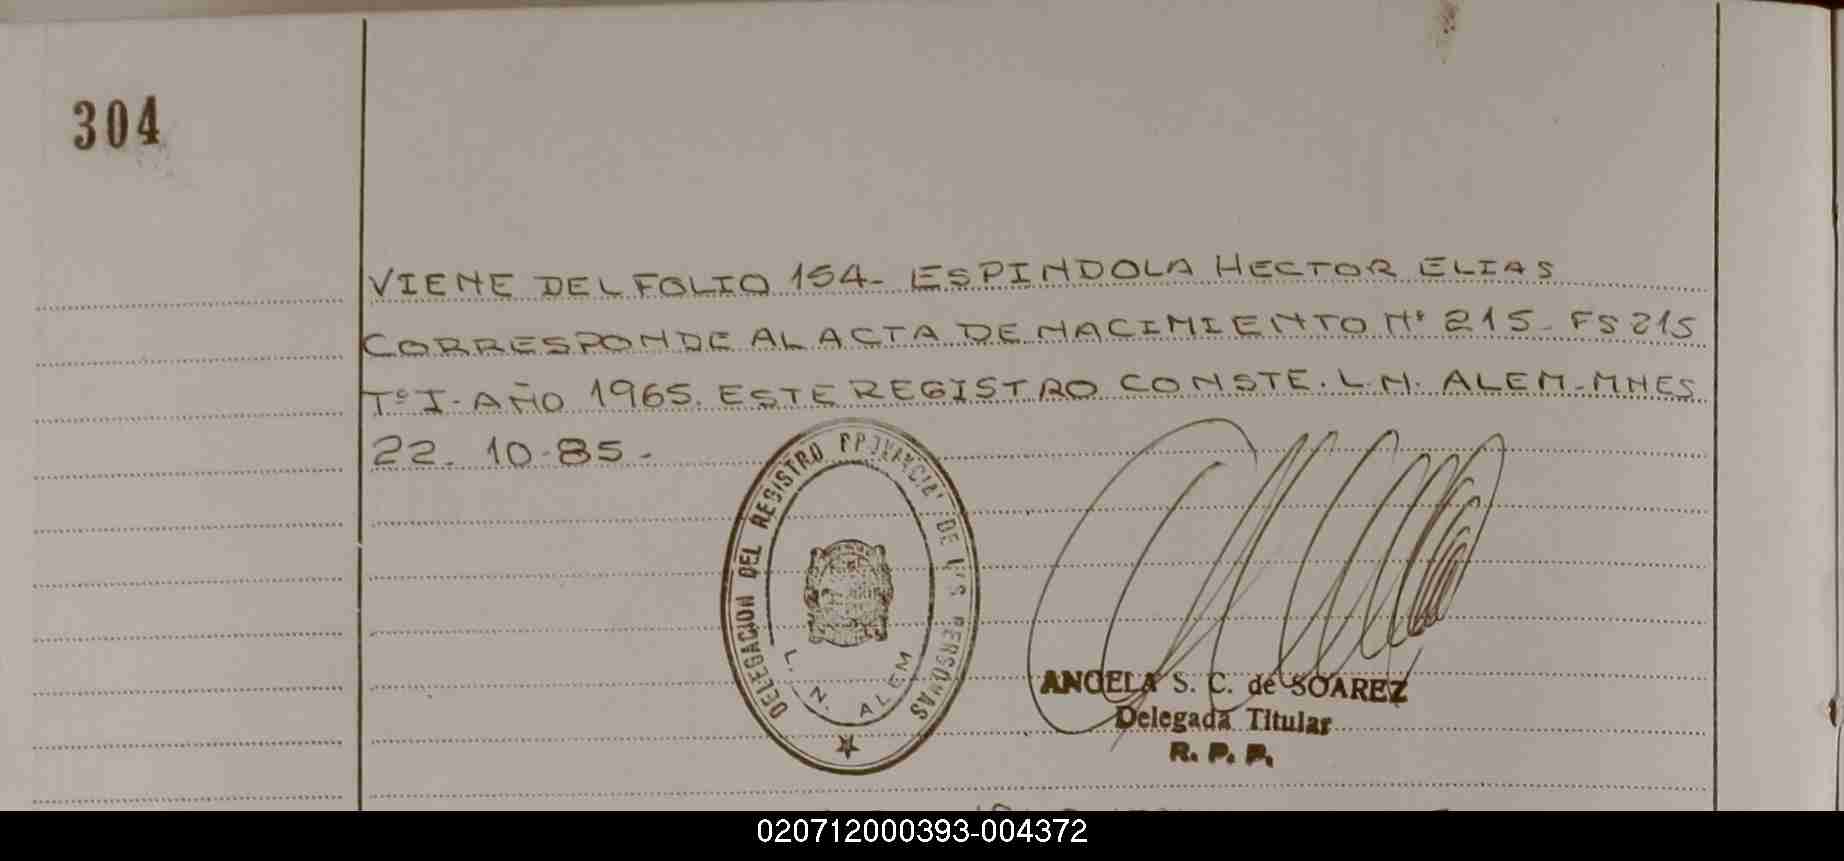 304
VIENE DEL FOLIO 154- ESPINDOLA HECTOR ELIAS
CORRESPONDE AL ACTA DE NACIMIENTO Nº 215- FS 215
Tº I- AÑO 1965. ESTE REGISTRO CONSTE. L.N. ALEM-MNES
22. 10-85-
DELEGACION DEL REGISTRO PROVINCIAL DE LAS PERSONAS
L. N. ALEM
ANGELA S. C. de SOAREZ
Delegada Titular
R. P. P.
020712000393-004372